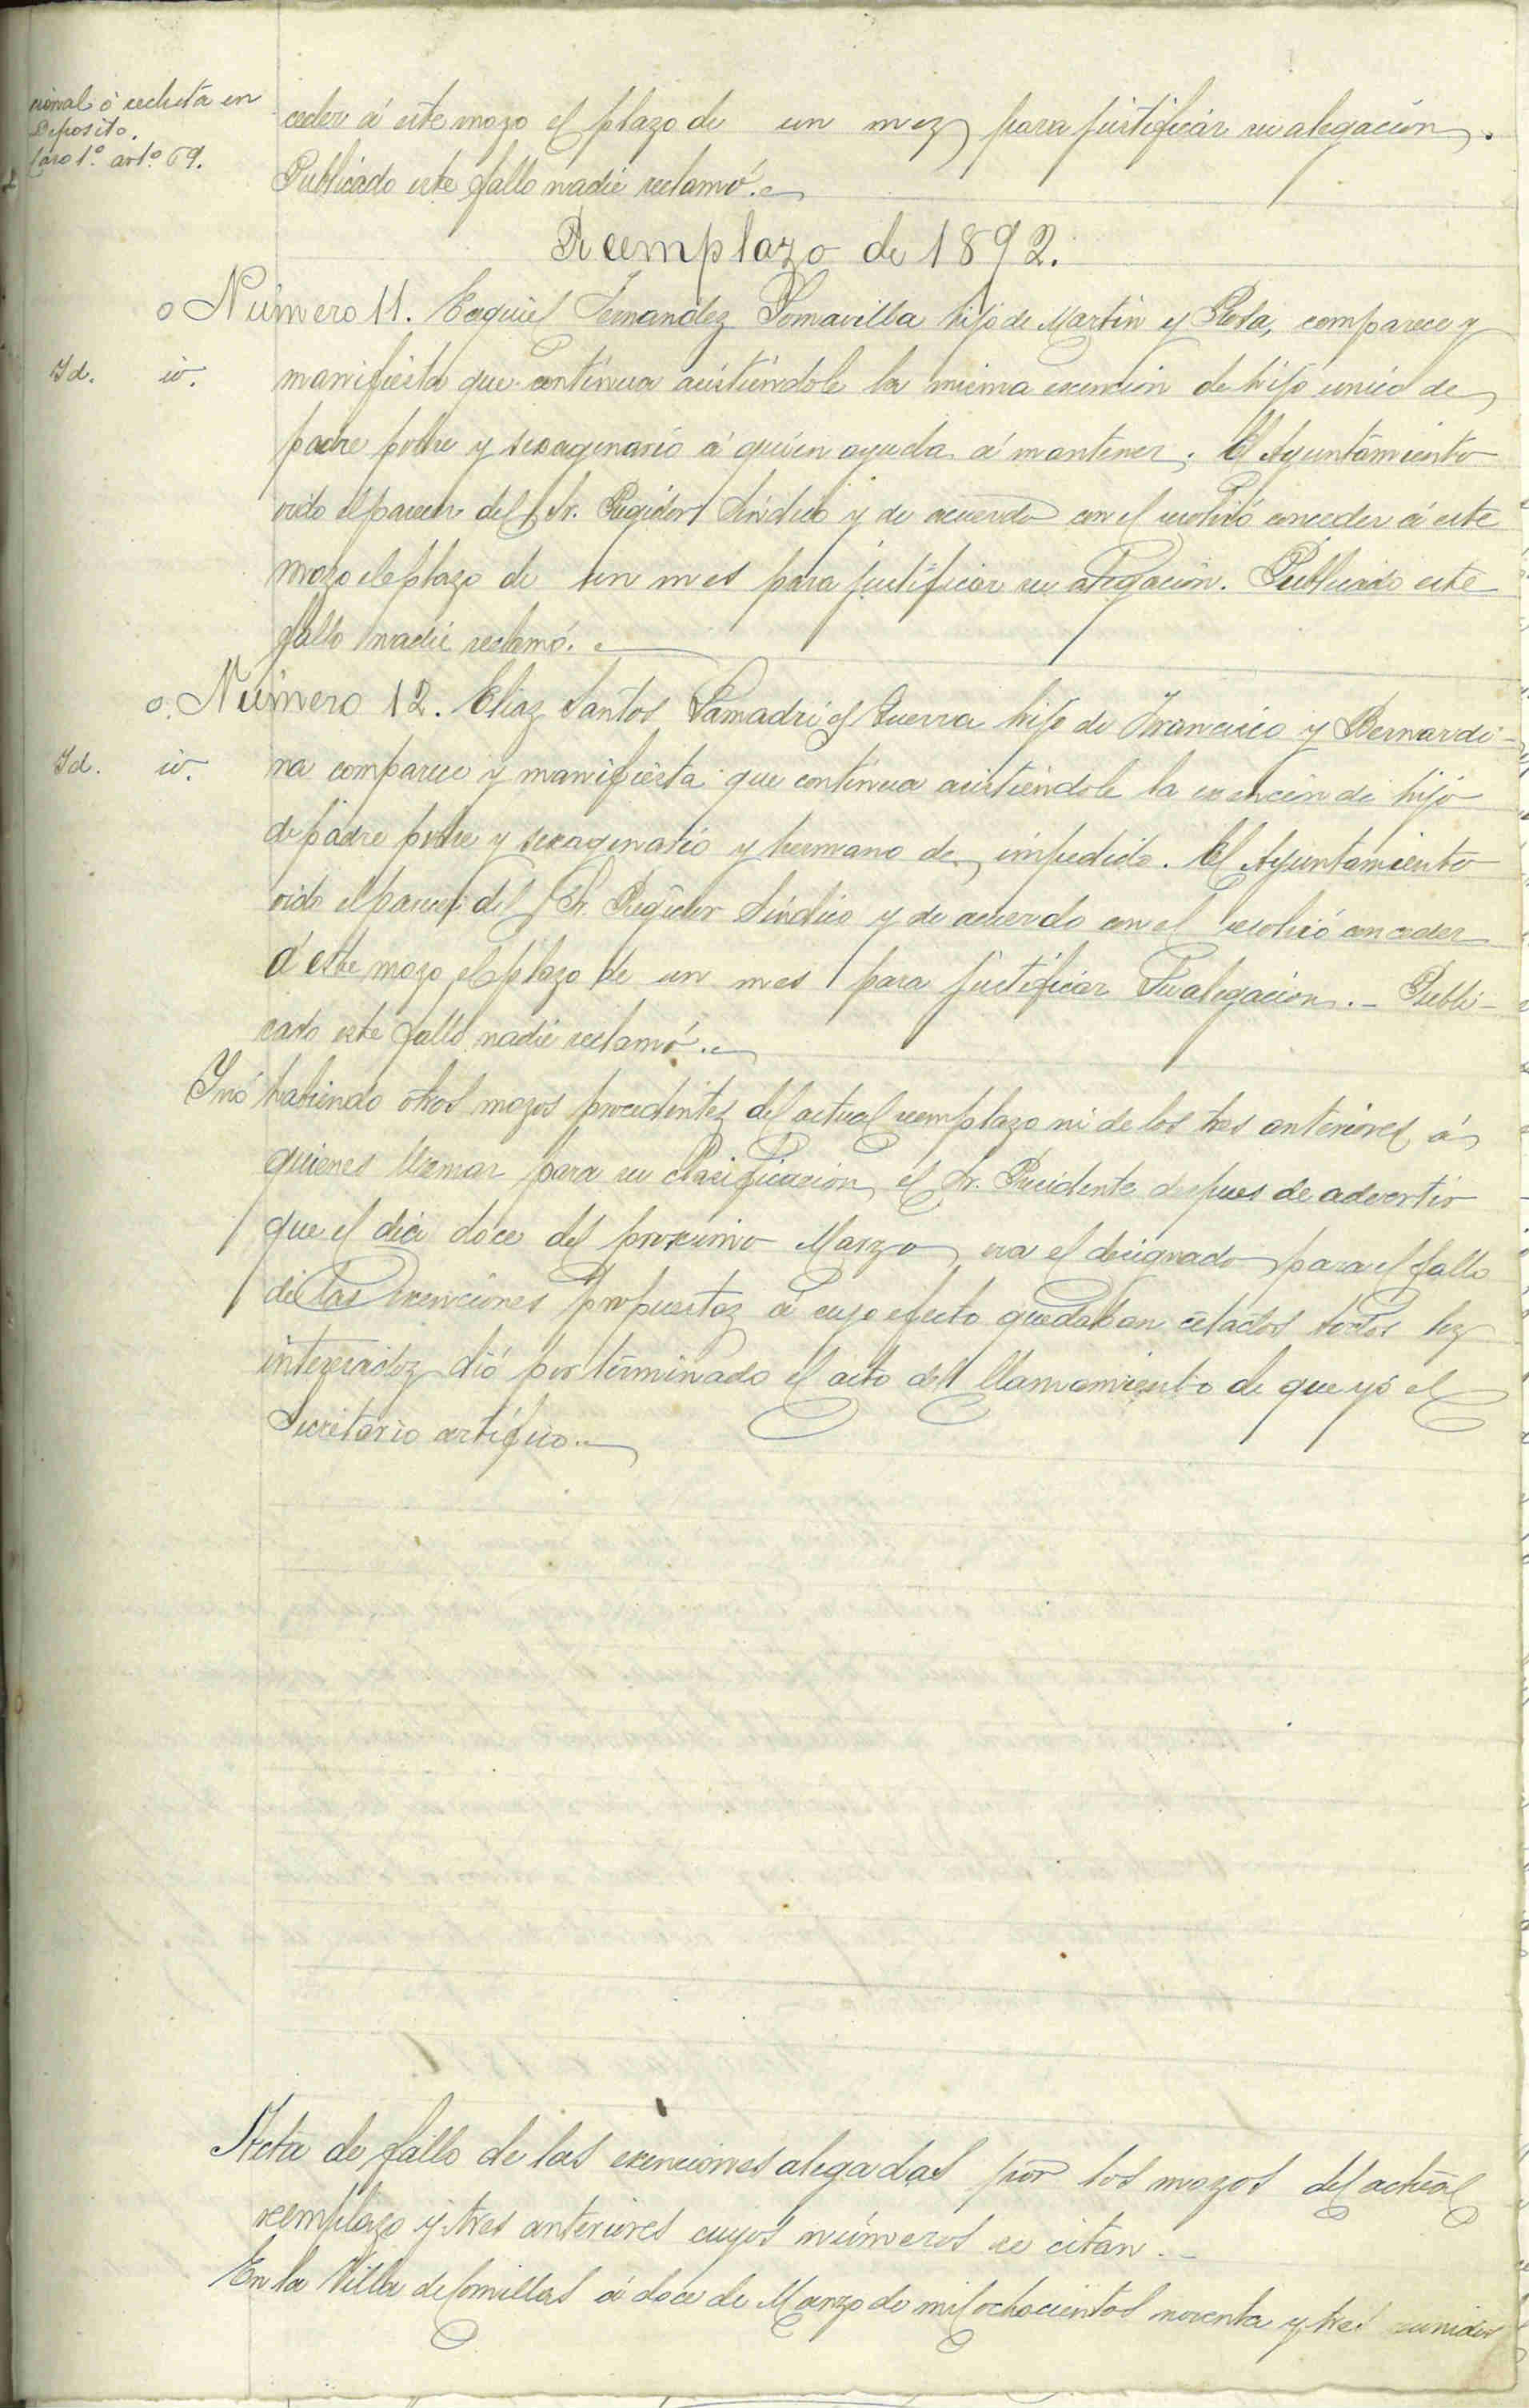 cional ó recluta en
Deposito.
Caso 1.º art.º 69.
ceder á este mozo el plazo de un mez para justificár su alegación.
Publicado este fallo nadie reclamó.
Reemplazo de 1892.
o Número 11. Exequiel Fernandez Somavilla hijo de Martin y Rosa, comparece y
Id. id. manifiesta que continua asistiéndole la misma exención de hijo unico de
padre pobre y sexagenario á quien ayuda á mantener. El Ayuntamiento
oido el parecer del Sr. Regidor Síndico y de acuerdo con el resolvió conceder á este
mozo el plazo de un mes para justificár su alegación. Publicado este
fallo nadie reclamó.
o. Número 12. Eliaz Santos Samadrid Guerra hijo de Francisco y Bernardi-
Id. id. na comparece y manifiesta que continua asistiéndole la exención de hijo
de padre pobre y sexagenario y hermano de impedido. El Ayuntamiento
oido el parecer del Sr. Regidor Síndico y de acuerdo con el resolvió conceder
á este mozo el plazo de un mes para justificár su alegación. - Publi-
cado este fallo nadie reclamó.
Y nó habiendo otros mozos procedentez del actual reemplazo ni de los tres anteriores á
quienes llamar para su clasificación, el Sr. Presidente despues de advertir
que el dia doce del proximo Marzo era el designado para el fallo
de las exenciones propuestaz á cuyo efecto quedaban citados todos loz
interesadoz dió por terminado el acto del llamamiento de que yó el
Secretario certifico.
Acta de fallo de las exenciones alegadas por los mozos del actual
reemplazo y tres anteriores cuyos números se citan. -
En la Villa de Comillas á doce de Marzo de mil ochocientos noventa y tres reunidos